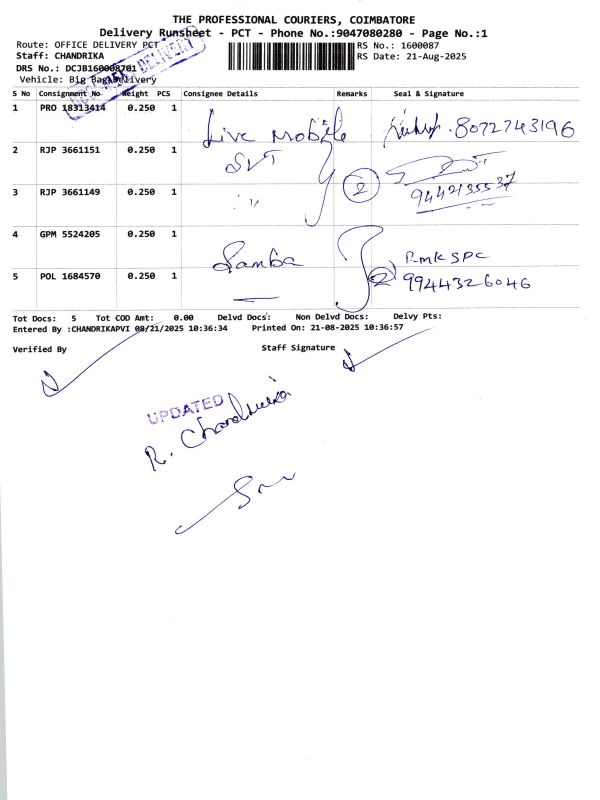 THE PROFESSIONAL COURIERS, COIMBATORE
Delivery Runsheet - PCT - Phone No.:9047080280 - Page No.:1
Route: OFFICE DELIVERY PCT
RS No.: 1600087
Staff: CHANDRIKA
RS Date: 21-Aug-2025
DRS No.: DCJB160008701
Vehicle: Big Bag Delivery
S No Consignment No Weight PCS Consignee Details Remarks Seal & Signature
1 PRO 18313414 0.250 1 Live Mobile 8072743196
2 RJP 3661151 0.250 1 SVT
3 RJP 3661149 0.250 1 " 2 9442135537
4 GPM 5524205 0.250 1 Samba RMKSPC
5 POL 1684570 0.250 1 2 9944326046
Tot Docs: 5 Tot COD Amt: 0.00 Delvd Docs: Non Delvd Docs: Delvy Pts:
Entered By :CHANDRIKAPVI 08/21/2025 10:36:34 Printed On: 21-08-2025 10:36:57
Verified By Staff Signature
UPDATED
R. Chandrika